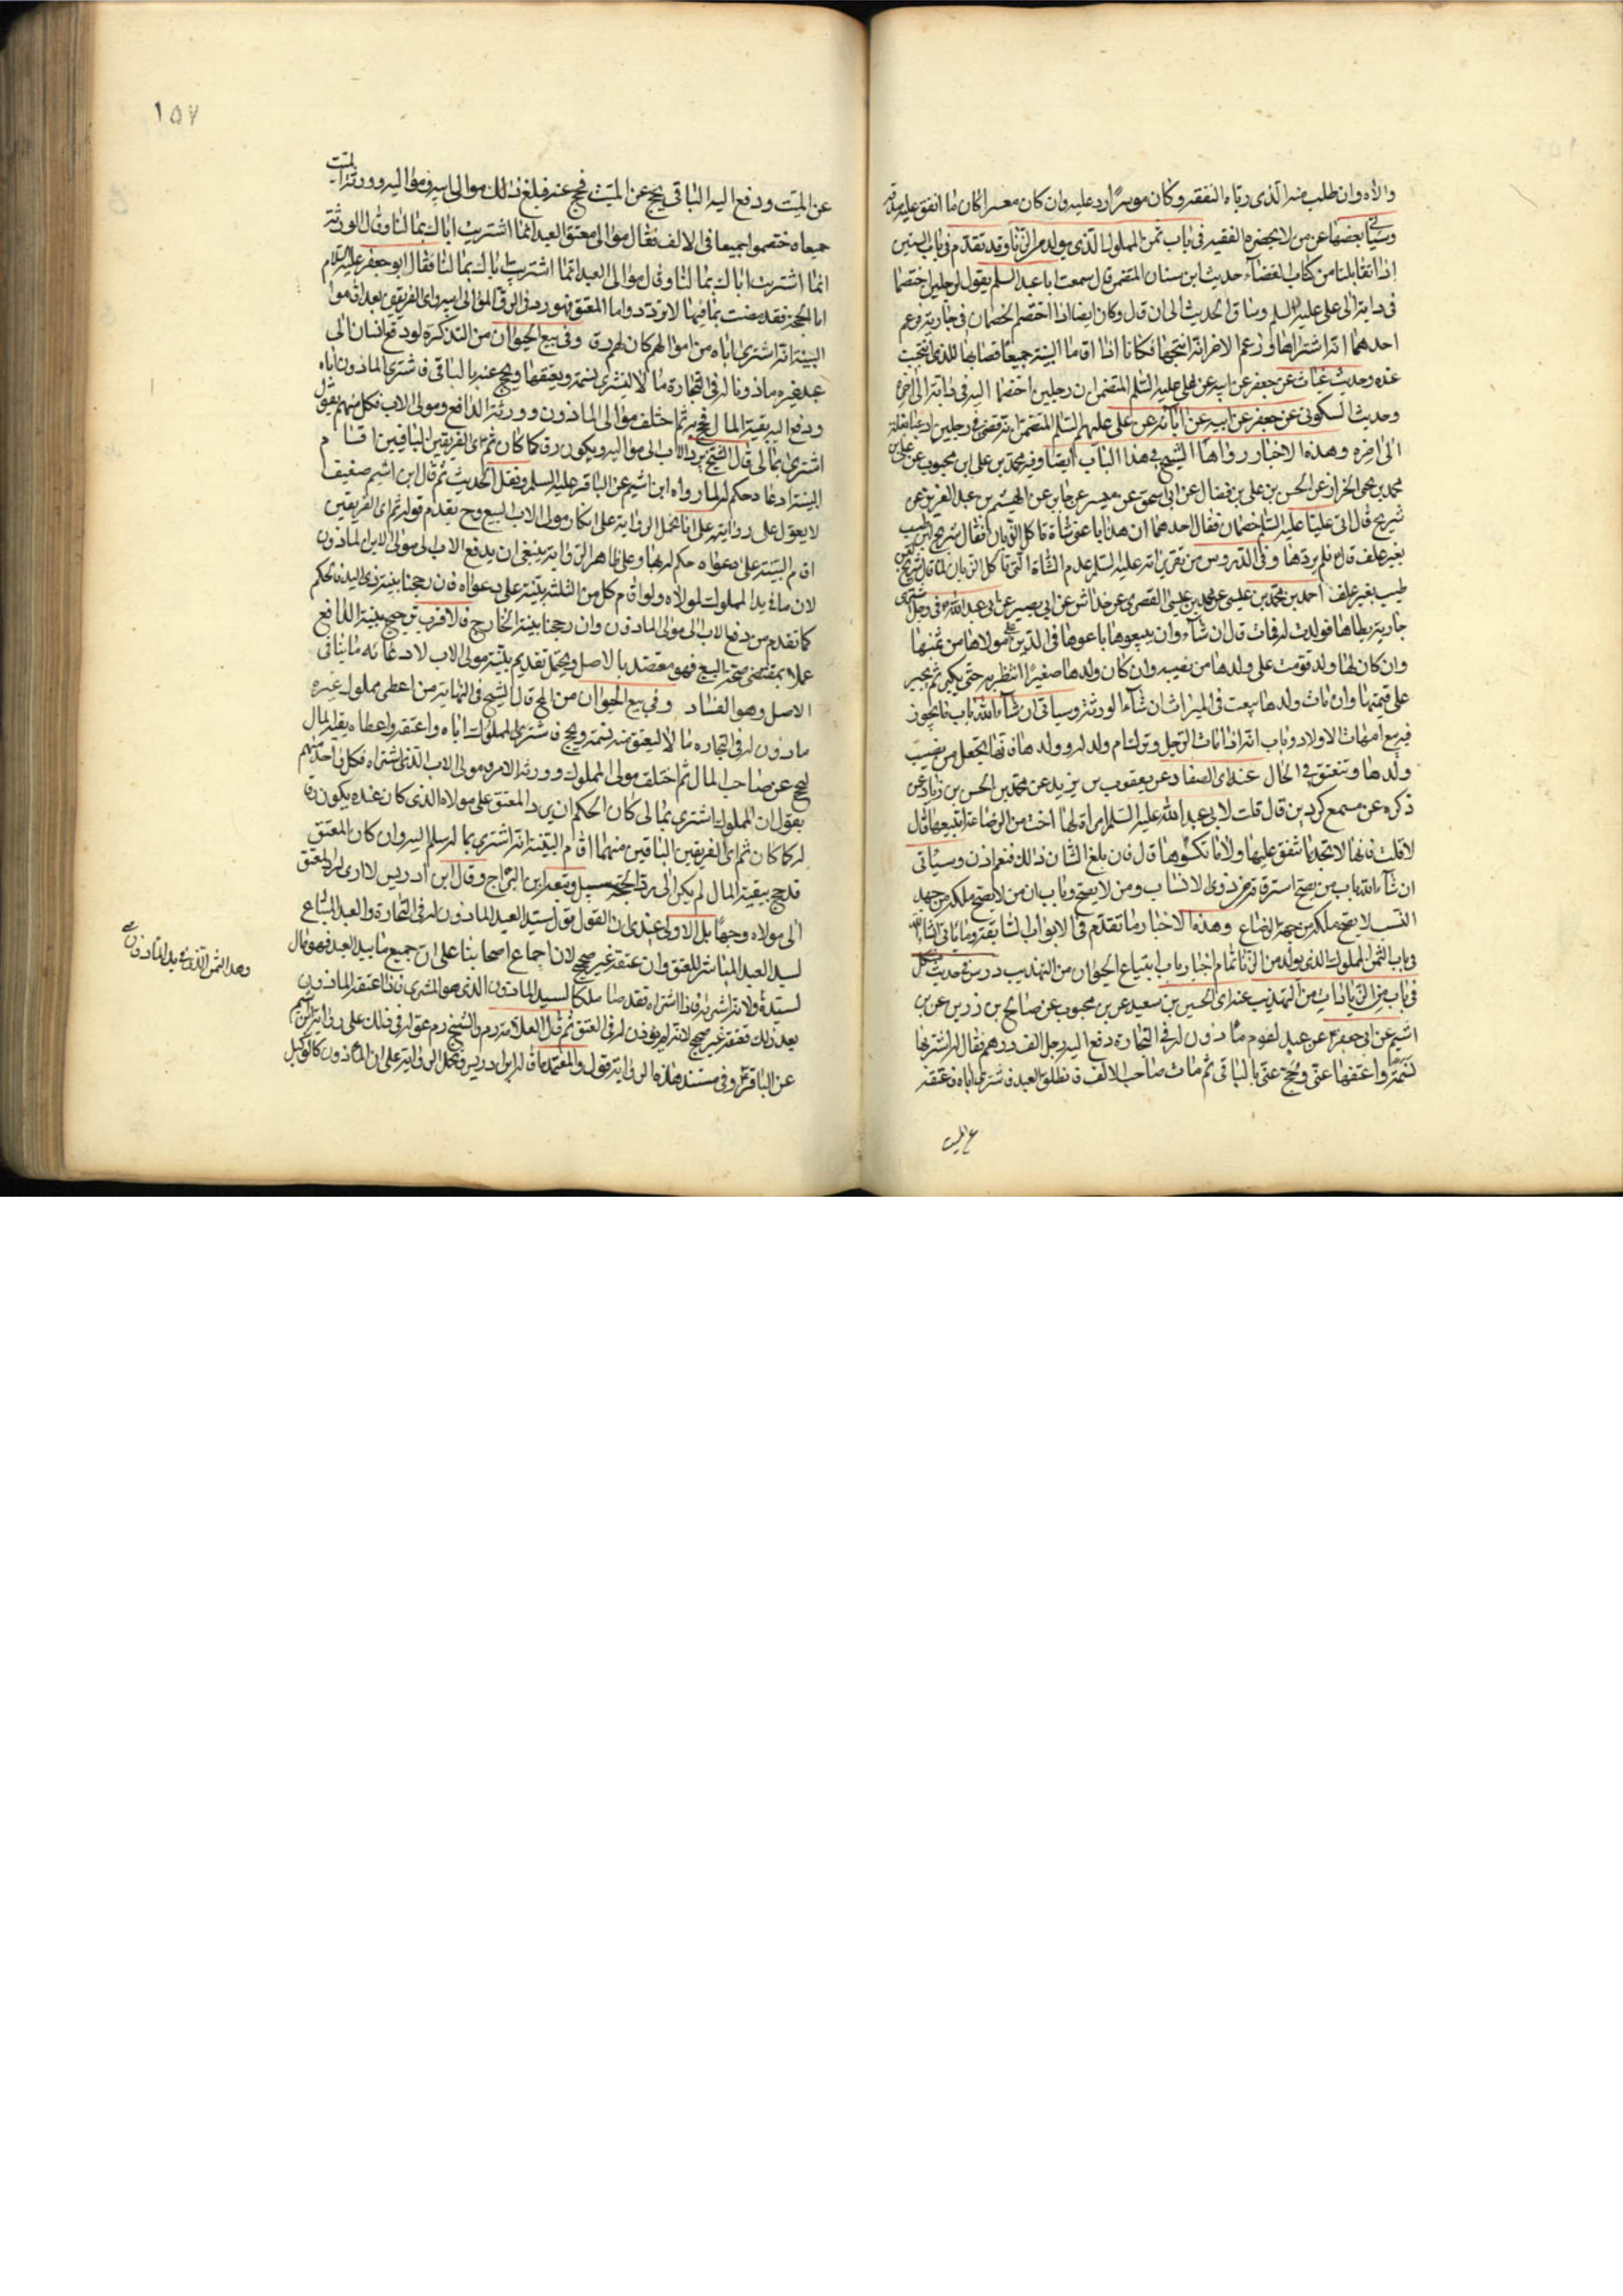 والاه وان طلب منه الذى رباه النفقه وكان موسرًا رد عليه وان كان معسرا كان ما انفق عليه صدقه
وسيأتي بعضها عن من لا يحضره الفقيه فى باب ثمن المملوك الذى يولد من الزنا وقد تقدم فى باب البينتين
اذا تقابلتا من كتاب القضاء حديث ابن سنان المتضمن قال سمعت ابا عبد السلم يقول ان رجلين اختصما
فى دابة الى على عليه السلم وساق الحديث الى ان قال وكان ايضا اذا اختصم الخصمان فى جارية وزعم
احدهما انه اشتراها وزعم الاخر انه انتجها فكانا اذا اقاما البينة جميعا قضا بها للذى انتجت
عنده وحديث غياث عن جعفر عن ابيه عن على عليه السلم المتضمن ان رجلين اختصما اليه فى دابة الى اخره
وحديث السكونى عن جعفر عن ابيه عن ابائه عن على عليهم السلم المتضمن انه قضى فى رجلين ادعيا بغلة
الى اخره وهذه الاخبار رواها الشيخ فى هذا الباب ايضا وفيه محمد بن على ابن محبوب عن على بن
محمد بن يحيى الخزاز عن الحسن بن على بن فضال عن ابى اسحق عن ميسر عن جابر عن الهيثم بن عبد العزيز عن
شريح قال اتى عليا عليه السلم خصمان فقال احدهما ان هذا باعنى شاة تاكل الذبان فقال شريح لبن طيب
بغير علف قال فلم يردها وفى الدروس من تقريراته عليه السلم عدم الشاة التى تاكل الذبان لما قال شريح لبن
طيب بغير علف احمد بن محمد بن عيسى عن محمد بن عيسى القصرى عن خداش عن ابى بصير عن ابى عبد الله ع فى رجل اشترى
جارية يطاها فولدت له فمات قال ان شاء وان يبيعوها باعوها فى الدين على مولاها من ثمنها
وان كان لها ولد قومت على ولدها من نصيبه وان كان ولدها صغيرًا انتظر به حتى يكبر ثم يجبر
على قيمتها وان مات ولدها بيعت فى الميراث ان شاء الورثة وسياتى ان شاء الله باب ما يجوز
فيه بيع امهات الاولاد وباب انه اذا مات الرجل وترك ام ولد له وولدها فانها تجعل من نصيب
ولدها وتنعتق فى الحال عنه اى الصفار عن يعقوب بن يزيد عن محمد بن الحسن بن زياد عن
ذكره عن مسمع كردين قال قلت لابى عبد الله عليه السلم امراة لها اخت من الرضاعة اتبيعها قال
لا قلت فانها لا تجد ما تنفق عليها ولا ما تكسوها قال فان بلغ الشان ذلك فنعم اذن وسياتى
ان شاء الله باب من يصح استرقاقه من ذوى الانساب ومن لا يصح وباب ان من لا يصح ملكه من جهة
النسب لا يصح ملكه من جهة الرضاع وهذه الاخبار ما تقدم فى الابواب السابقة وما ياتى ان شاء الله
فى باب الثمن المملوك الذى يولد من الزنا تمام اخبار باب ابتياع الحيوان من التهذيب درس فى حديث مشكل
فى باب من الزيادات من التهذيب عنه اى الحسين بن سعيد عن بن محبوب عن صالح بن رزين عن بن
اشيم عن ابى جعفر ع عن عبد لقوم ماذون له فى التجارة دفع اليه رجل الف درهم فقال له اشتر بها
نسمة واعتقها عنى وحج عنى بالباقى ثم مات صاحب الالف فانطلق العبد فاشترى اباه فاعتقه
عن الميت
١٥٧
عن الميت ودفع اليه الباقى يحج عن الميت فحج عنه فبلغ ذلك موالى ابيه ومواليه وورثة الميت
جميعا فاختصموا جميعا فى الالف فقال موالى معتق العبد انما اشتريت اباك بمالنا وقال الورثة
انما اشتريت اباك بمالنا وقال موالى العبد انما اشتريت اباك بمالنا فقال ابو جعفر عليه السلام
اما الحجة فقد مضت بما فيها لا ترد واما المعتق فهو رد فى الرق لموالى ابيه واى الفريقين بعد اقاموا
البينة انه اشترى اباه من اموالهم كان لهم رق وفى بيع الحيوان من التذكره لو دفع انسان الى
عبد غيره ماذونا له فى التجارة مالا ليشترى نسمة ويعتقها ويحج عنه بالباقى فاشترى الماذون اباه
ودفع اليه بقية المال فحج به ثم اختلف موالى الماذون وورثة الدافع ومولى الاب فكل منهم يقول
اشترى بمالى قال الشيخ يرد الاب الى مواليه ويكون رقا كما كان ثم اى الفريقين الباقيين اقام
البينة ادعا دحكم له لما رواه ابن اشيم عن الباقر عليه السلم ونقل الحديث ثم قال ابن اشيم ضعيف
لا يعول على روايته على انا نحمل الرواية على انكار مولى الاب البيع وح يقدم قوله ثم اى الفريقين
اقام البينة على دعواه حكم له بها وعلى ظاهر الرواية ينبغى ان يدفع الاب الى مولى الابن الماذون
لان ما فى يد المملوك لمولاه ولو اقام كل من الثلثة بينة على دعواه فان رجحنا بينة ذى اليد فالحكم
كما تقدم من دفع الاب الى مولى الماذون وان رجحنا بينة الخارج فالاقرب ترجيح بينة الدافع
عملا بمقتضى صحة البيع فهو معتضد بالاصل ويحتمل تقديم بينة مولى الاب لادعائه ما ينافى
الاصل وهو الفساد وفى بيع الحيوان من لح قال الشيخ فى النهاية من اعطى مملوك غيره
ماذون له فى التجاره مالا ليعتق منه نسمة ويحج فاشترى المملوك اباه واعتقه واعطاه بقية المال
ليحج عن صاحب المال ثم اختلف مولى المملوك وورثة الامر ومولى الاب الذى اشتراه فكل واحد منهم
يقول ان المملوك اشترى بمالى كان الحكم ان يرد المعتق على مولاه الذى كان عنده يكون رقا
له كما كان ثم اى الفريقين الباقين منهما اقام البينة انه اشترى بماله سلم اليه وان كان المعتق
قد حج ببقية المال لم يكن الى رد الحجة سبيل وتبعه ابن البراج وقال ابن ادريس لا ارى لرد المعتق
الى مولاه وجهًا بل الاولى عندى ان القول قول سيد العبد الماذون له فى التجارة والعبد المبتاع
لسيد العبد المباشر للعتق وان عتقه غير صحيح لان اجماع اصحابنا على ان جميع ما بيد العبد فهو مال
لسيده ولانه اشتراه فاذا اشتراه فقد صار ملكا لسيد الماذون الذى هو المشترى فاذا اعتقه الماذون
بعد ذلك فعتقه غير صحيح لانه لم يوذن له فى العتق ثم قال العلامة ره والشيخ ره عول فى ذلك على رواية ابن اشيم
عن الباقر ع وفى مستند هذه الرواية قول والمعتمد ما قاله ابن ادريس ونحمل الرواية على ان الماذون كالوكيل
وهذا الثمن الذى فى يد الماذون